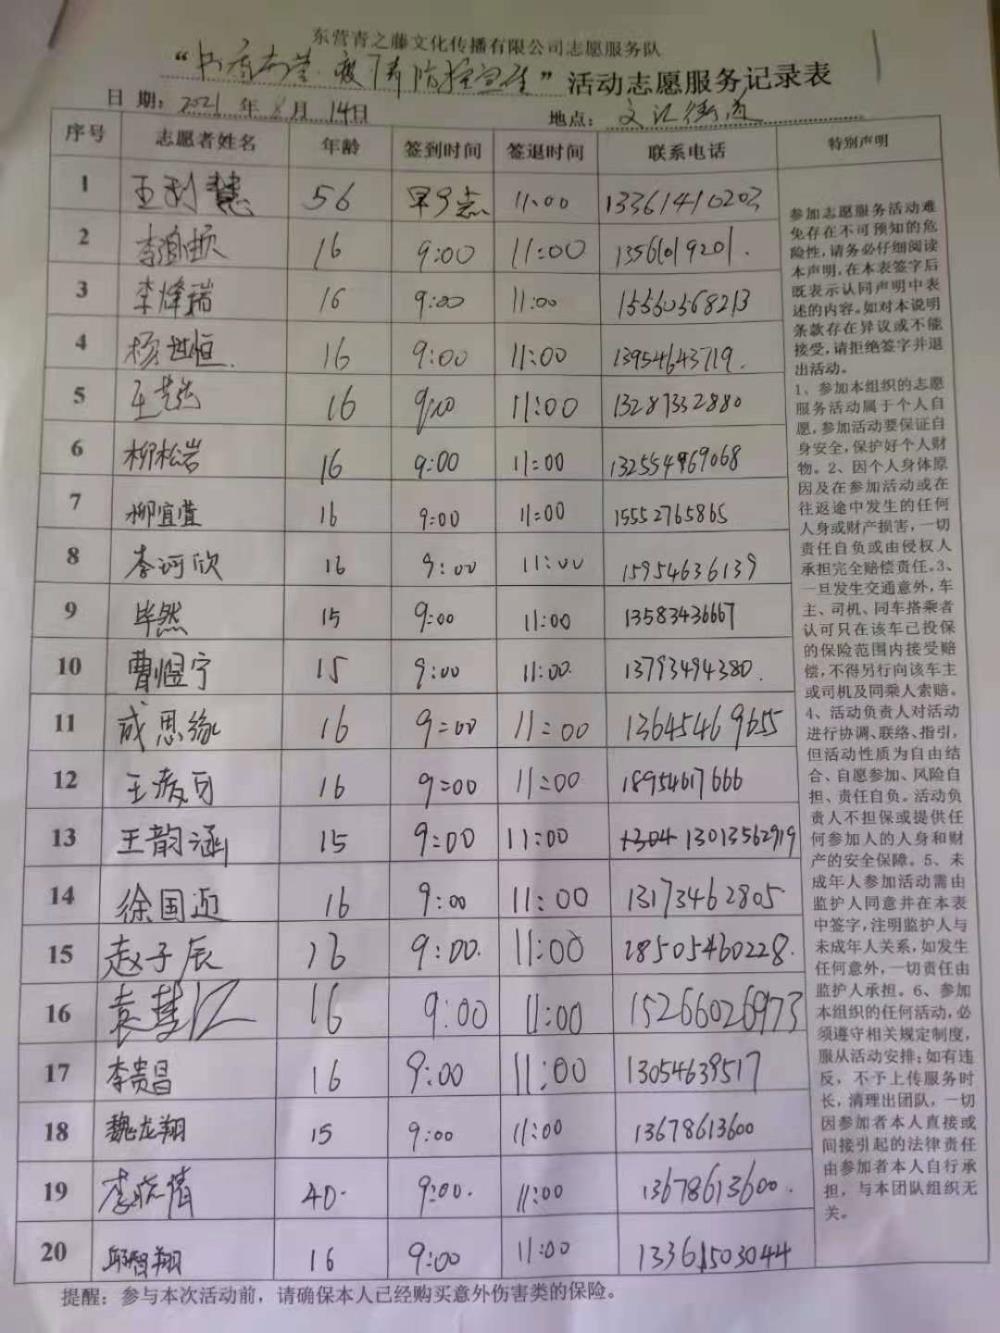 东营青之藤文化传播有限公司志愿服务队
“书香 疫情防控宣传”活动志愿服务记录表
日 期：2021 年 8 月 14日 地点：文汇街道
序号 志愿者姓名 年龄 签到时间 签退时间 联系电话 特别声明
1 王利慧 56 早9点 11:00 13361410203
2 16 9:00 11:00 13561019201.
3 李烽瑞 16 9:00 11:00 15560568213
4 杨世恒. 16 9:00 11:00 13954643719.
5 16 9:00 11:00 13287332880
6 柳松岩 16 9:00 11:00 132554969068
7 柳宜萱 16 9:00 11:00 15552765865
8 李诃欣 16 9:00 11:00 15954636139
9 毕然 15 9:00 11:00 13583436667
10 曹煜宁 15 9:00 11:00. 13793494380.
11 成思缘 16 9:00 11:00 13645469655
12 16 9:00 11:00 18954617666
13 王韵涵 15 9:00 11:00 13013562919
14 徐国迎 16 9:00 11:00 13173462805
15 赵子辰 16 9:00. 11:00 18505460228.
16 袁慧仁 16 9:00 11:00 15266026973
17 李贵昌 16 9:00 11:00 13054639517
18 魏龙翔 15 9:00 11:00 13678613600
19 李晓倩 40. 9:00. 11:00 13678613600.
20 邱智翔 16 9:00 11:00 13361503044
参加志愿服务活动难
免存在不可预知的危
险性，请务必仔细阅读
本声明，在本表签字后
既表示认同声明中表
述的内容。如对本说明
条款存在异议或不能
接受，请拒绝签字并退
出活动。
1、参加本组织的志愿
服务活动属于个人自
愿，参加活动要保证自
身安全，保护好个人财
物。2、因个人身体原
因及在参加活动或在
往返途中发生的任何
人身或财产损害，一切
责任自负或由侵权人
承担完全赔偿责任。3、
一旦发生交通意外，车
主、司机、同车搭乘者
认可只在该车已投保
的保险范围内接受赔
偿，不得另行向该车主
或司机及同乘人索赔。
4、活动负责人对活动
进行协调、联络、指引，
但活动性质为自由结
合、自愿参加、风险自
担、责任自负。活动负
责人不担保或提供任
何参加人的人身和财
产的安全保障。5、未
成年人参加活动需由
监护人同意并在本表
中签字，注明监护人与
未成年人关系，如发生
任何意外，一切责任由
监护人承担。6、参加
本组织的任何活动，必
须遵守相关规定制度，
服从活动安排；如有违
反，不予上传服务时
长，清理出团队，一切
因参加者本人直接或
间接引起的法律责任
由参加者本人自行承
担，与本团队组织无
关。
提醒：参与本次活动前，请确保本人已经购买意外伤害类的保险。